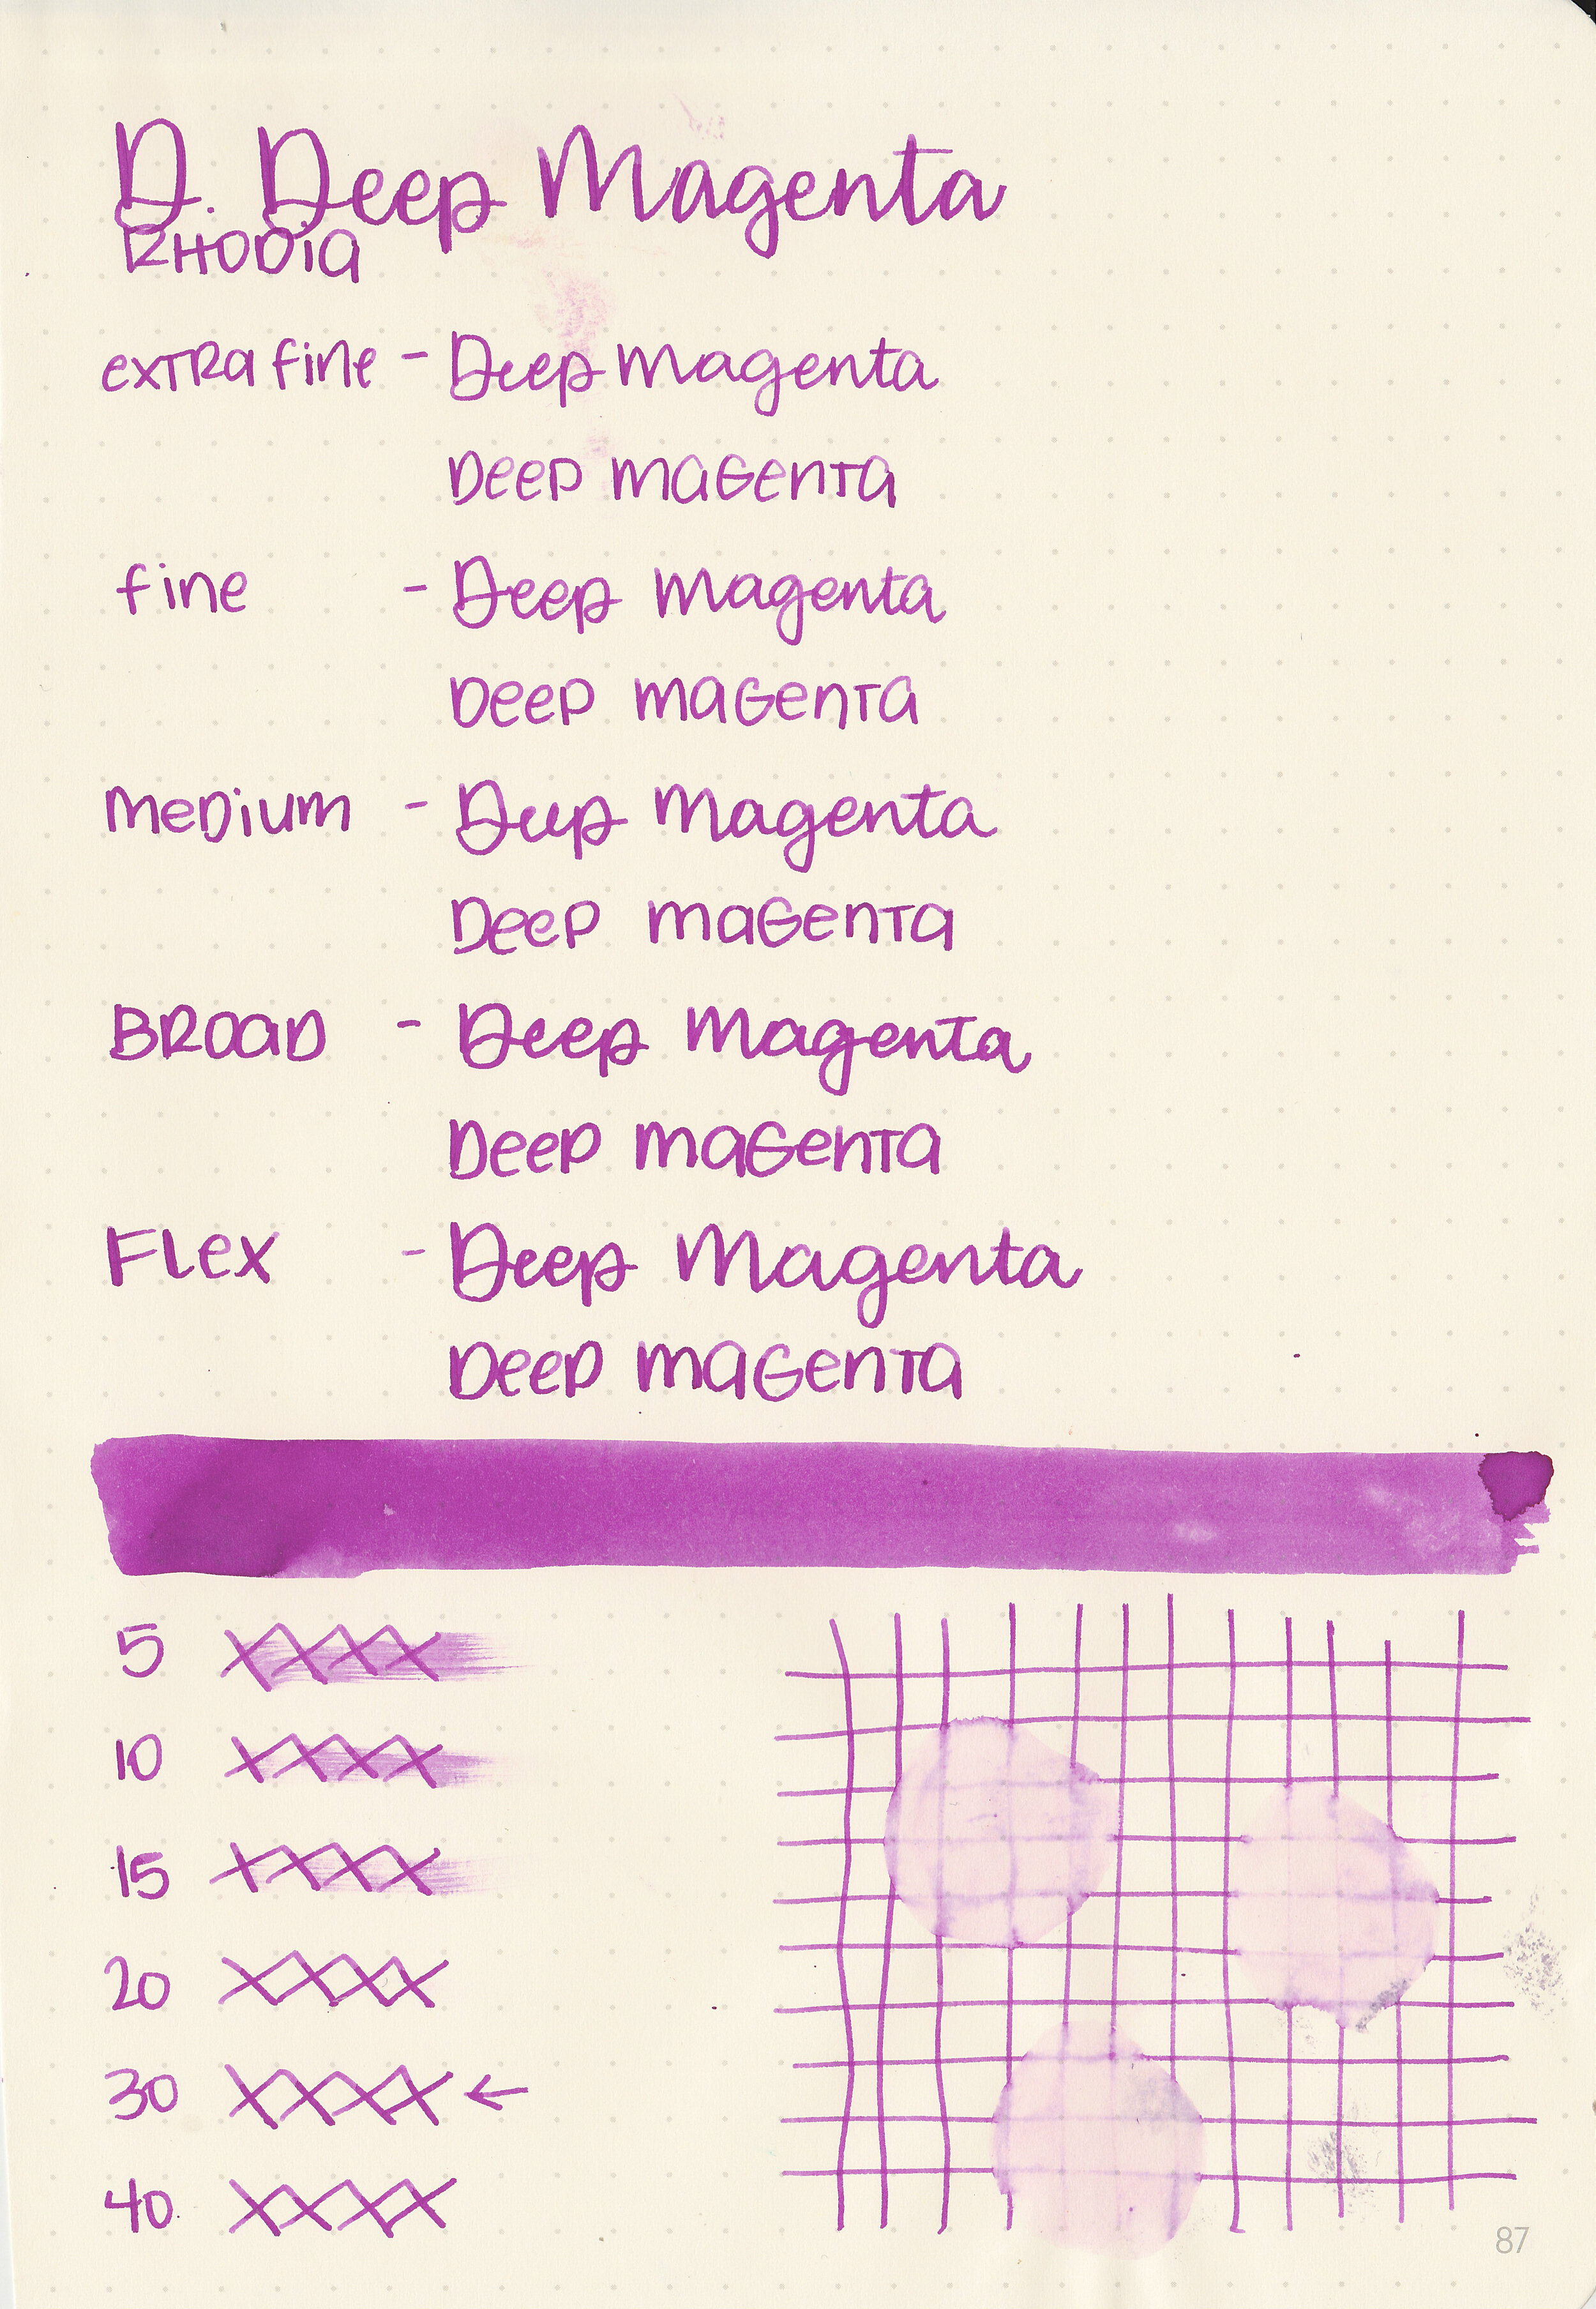 D. Deep Magenta
RHODIA
extra fine - Deep Magenta
Deep Magenta
fine - Deep Magenta
Deep Magenta
medium - Deep Magenta
Deep Magenta
Broad - Deep Magenta
Deep Magenta
Flex - Deep Magenta
Deep Magenta
5 XXXX
10 XXXX
15 XXXX
20 XXXX
30 XXXX ←
40 XXXX
87